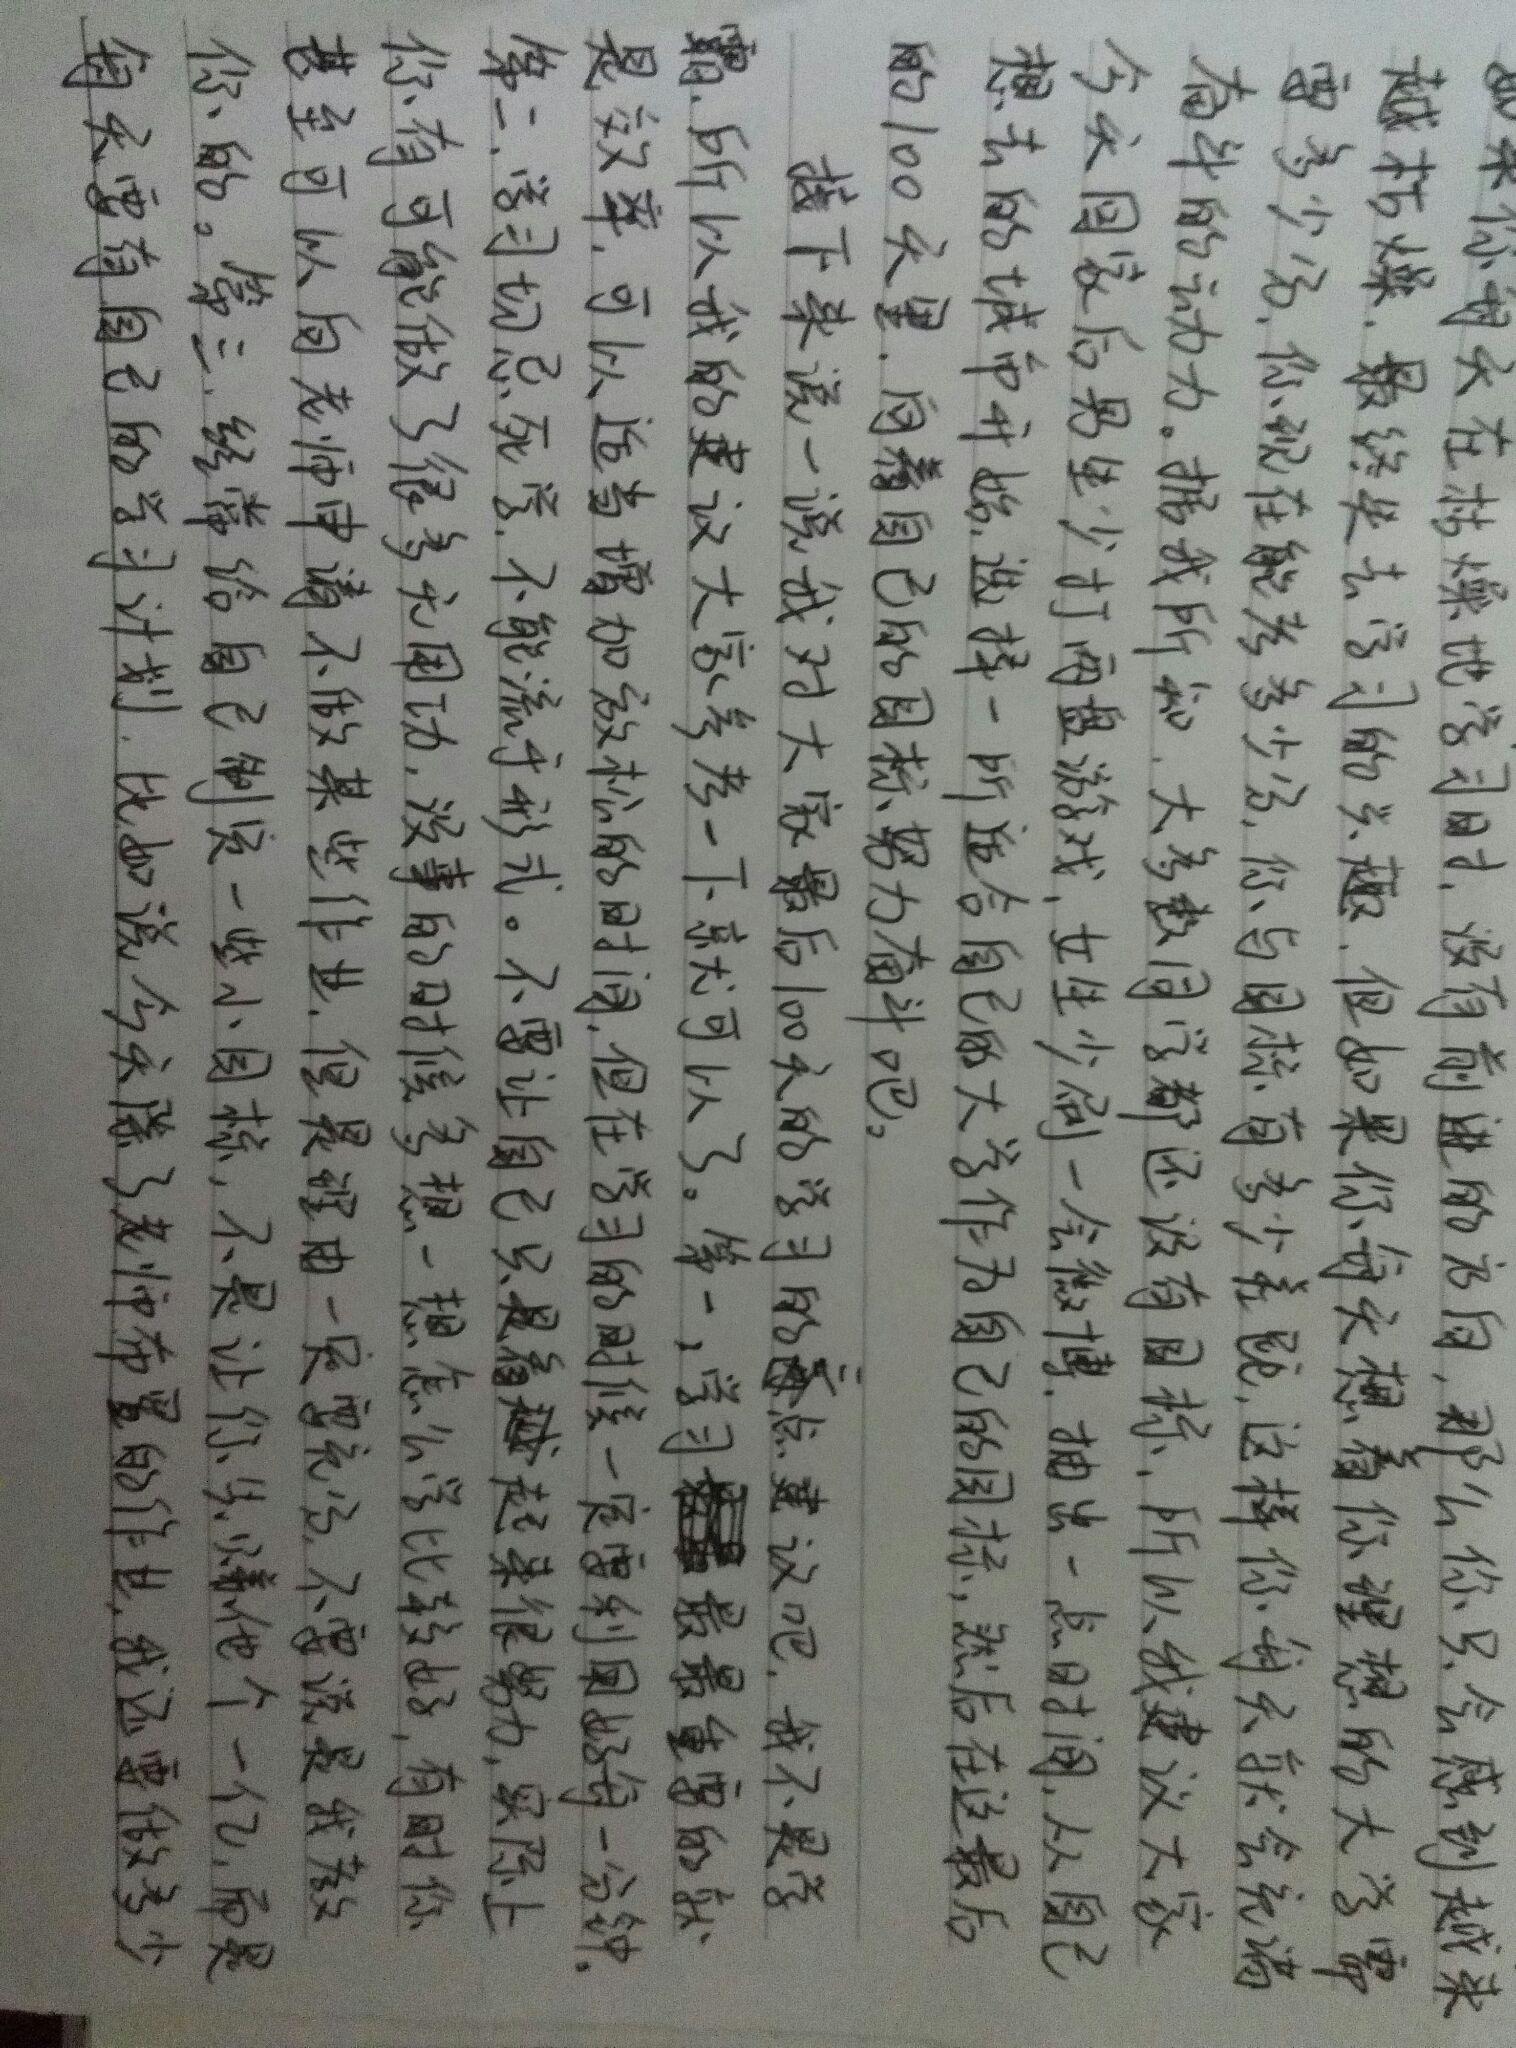 如果你每天在枯燥地学习时，没有前进的方向，那么你只会感到越来
越枯燥，最终失去学习的兴趣，但如果你每天想着你理想的大学需
要多少分，你现在能考多少分，你与目标有多少差距，这样你每天就会充满
奋斗的动力。据我所知，大多数同学都还没有目标，所以我建议大家
今天回家后男生少打两盘游戏，女生少刷一会微博，抽出一点时间，从自己
想去的城市开始，选择一所适合自己的大学作为自己的目标，然后在这最后
的100天里，向着自己的目标努力奋斗吧。
接下来说一说我对大家最后100天的学习的一点建议吧，我不是学
霸，所以我的建议大家参考一下就可以了。第一，学习最最重要的就
是效率，可以适当增加放松的时间，但在学习的时候一定要利用好每一分钟。
第二，学习切忌死学，不能流于形式。不要让自己只是看起来很努力，实际上
你有可能做了很多无用功，没事的时候多想一想怎么学比较好，有时你
甚至可以向老师申请不做某些作业，但是理由一定要充分，不要说是我教
你的。第三，经常给自己制定一些小目标，不是让你先赚他个一个亿，而是
每天要有自己的学习计划，比如说今天除了老师布置的作业，我还要做多少